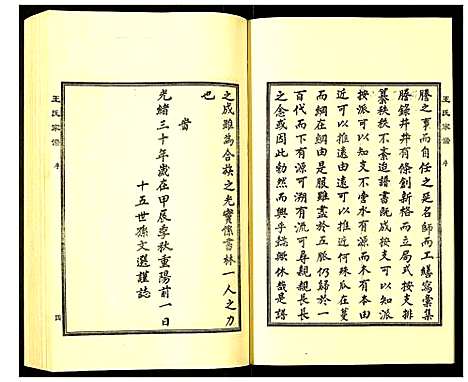 王氏家譜 序
謄之事而自任之延名師而工繕寫彙集
謄錄井井有條創新格而立局式按支排
纂秩秩不紊迨譜書既成按支可以知派
按派可以知支不啻水有源而木有本由
近可以推遠由遠可以推近何殊瓜在蔓
而綱在紀由是服雖盡於五脈仍歸於一
百代而下有源可溯有流可尋親親長長
之念或因此勃然而興乎猗歟休哉是譜
之成雖為合族之光實係書林一人之力
也
光緒三十年歲在甲辰季秋重陽前一日
十五世孫文選謹誌
王氏家譜 序 四